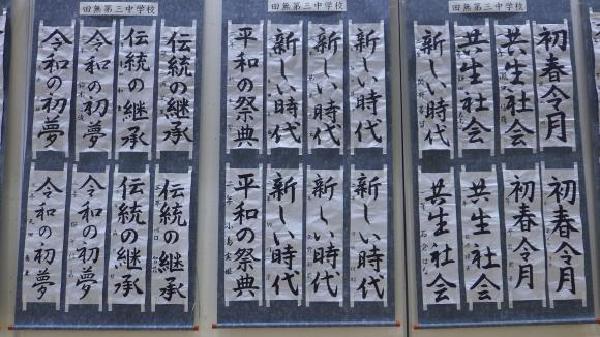 田無第三中学校
初春令月
共生社会
共生社会
新しい時代
初春令月
初春令月
共生社会
共生社会
田無第三中学校
新しい時代
新しい時代
新しい時代
平和の祭典
新しい時代
新しい時代
新しい時代
平和の祭典
田無第三中学校
伝統の継承
伝統の継承
令和の初夢
令和の初夢
伝統の継承
伝統の継承
令和の初夢
令和の初夢